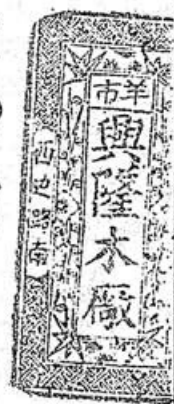 羊市
興隆木廠
西边路南